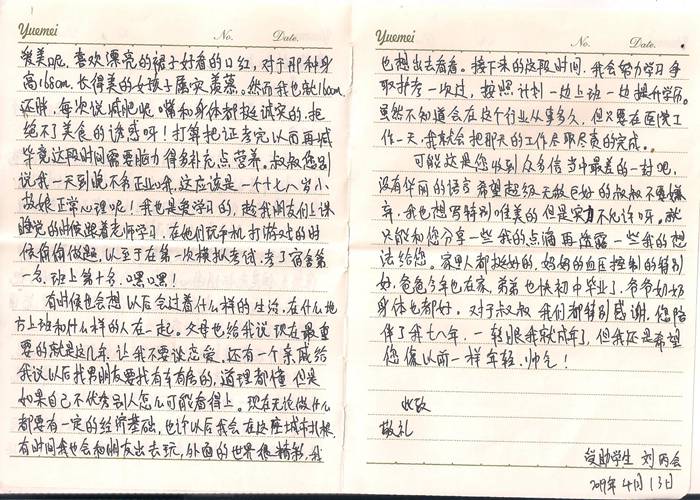 Yuemei
No. Date.
爱美呢,喜欢漂亮的裙子好看的口红,对于那种身
高168cm,长得美的女孩子属实羡慕。然而我也就160cm
还胖,每次说减肥呢嘴和身体都挺诚实的,拒
绝不了美食的诱惑呀!打算把证考完以后再减
毕竟这段时间需要脑力得多补充点营养。叔叔您别
说我一天到晚不务正业哦,这应该是一个十七八岁小
姑娘正常心理呢!我也是爱学习的,趁我朋友们上课
睡觉的时候跟着老师学习,在她们玩手机打游戏的时
候偷偷做题,以至于在第一次模拟考试,考了宿舍第
一名,班上第十名,嘿嘿!
有时候也会想以后会过着什么样的生活,在什么地
方上班和什么样的人在一起。父母也给我说现在最重
要的就是这几年,让我不要谈恋爱,还有一个亲戚给
我说以后找男朋友要找有车有房的,道理都懂但是
如果自己不优秀别人怎么可能看得上。现在无论做什么
都要有一定的经济基础,也许以后我会在这座城市扎根,
有时间我也会和朋友出去玩,外面的世界很精彩,我
Yuemei
No. Date.
也想出去看看。接下来的这段时间,我会努力学习争
取护考一次过,按照计划一边上班一边提升学历。
虽然不知道会在这个行业从事多久,但只要在医院工
作一天,我就会把那天的工作尽职尽责的完成。
可能这是您收到众多信当中最差的一封吧,
没有华丽的语言希望超级无敌巨好的叔叔不要嫌
弃,我也想写特别唯美的但是实力不允许呀。就
只能和您分享一些我的点滴再透露一些我的想
法给您。家里人都挺好的,妈妈的血压控制的特别
好,爸爸今年也在家,弟弟也快初中毕业了,爷爷奶奶
身体也都好。对于叔叔我们都特别感谢,您陪
伴了我七八年,一转眼我就成年了,但我还是希望
您像以前一样年轻,帅气!
此致
敬礼
受助学生 刘丙会
年4月13日